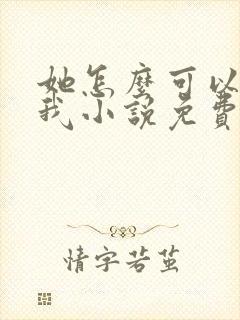 她怎麽可以
我小説免費
情字若茧